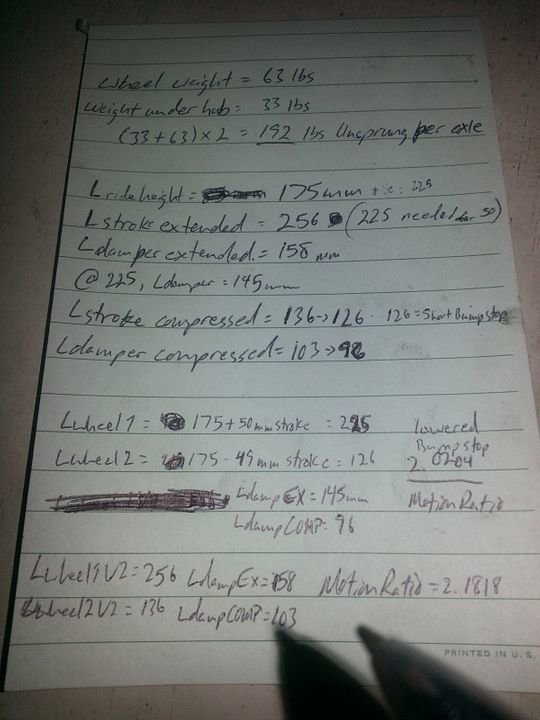 Wheel weight = 63 lbs
Weight under hub = 33 lbs
(33+63)×2 = 192 lbs Unsprung per axle
L rideheight = 175mm 225
L stroke extended = 256 (225 needed for 50)
L damper extended = 158 mm
@ 225, L damper = 145mm
L stroke compressed = 136→126. 126=Short Bumpstop
L damper compressed = 103→96
L wheel 1 = 175 + 50mm stroke = 225
L wheel 2 = 175 - 49 mm stroke = 126
lowered
Bumpstop
2.0204
Motion Ratio
L damp EX = 145mm
L damp COMP: 96
L wheel 1 V2 = 256 L damp Ex = 158 Motion Ratio = 2.1818
L wheel 2 V2 = 136 L damp COMP = 103
PRINTED IN U. S.